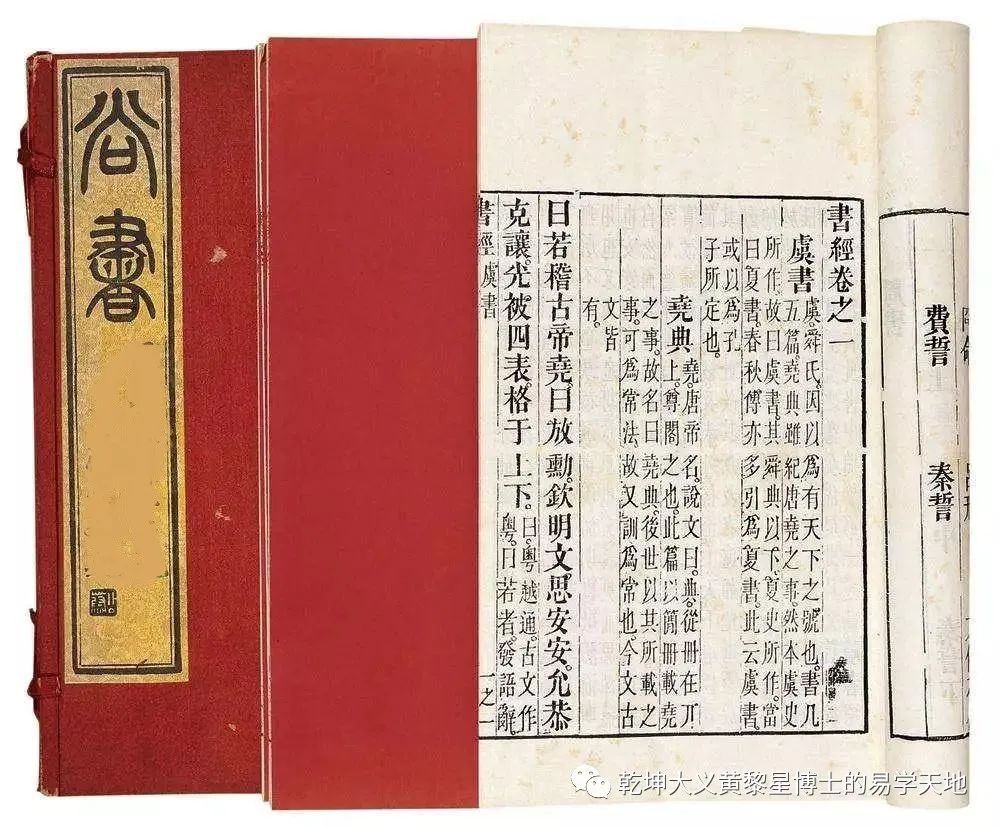 尚書
費誓 秦誓
書經卷之一
虞書 虞舜氏。因以爲有天下之號也。書凡
五篇。堯典雖紀唐堯之事。然本虞史
所作。故曰虞書。其舜典以下。夏史所作。當
曰夏書。春秋傳亦多引爲夏書。此云虞書。
或以爲孔
子所定也。
堯典 堯。唐帝名。說文曰。典。從冊在丌
上。尊閣之也。此篇以簡冊載堯
之事。故名曰堯典。後世以其所載之
事。可爲常法。故又訓爲常也。今文古
文皆
有。
曰若稽古帝堯。曰放勳。欽明文思安安。允恭
克讓。光被四表。格于上下。曰。粵越通。古文作
粵。曰若者。發語辭。
書經 虞書 一之一
乾坤大义黄黎星博士的易学天地